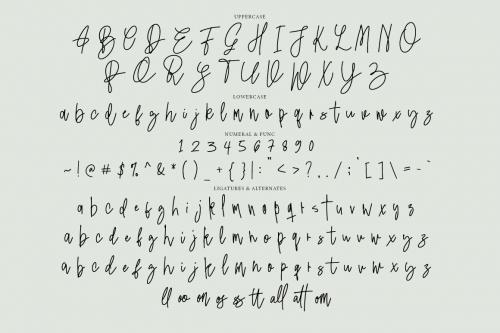 UPPERCASE
A B C D E F G H I J K L M N O
P Q R S T U V W X Y Z
LOWERCASE
a b c d e f g h i j k l m n o p q r s t u v w x y z
NUMERAL & FUNC
1 2 3 4 5 6 7 8 9 0
~ ! @ # $ % ^ & * ( ) _ + { } | : " < > ? , . / ; ' [ ] \ = - `
LIGATURES & ALTERNATES
a b c d e f g h i j k l m n o p q r s t u v w x y z
a b c d e f g h i j k l m n o p q r s t u v w x y z
a b c d e f g h i j k l m n o p q r s t u v w x y z
ll oo on os ss tt all att om